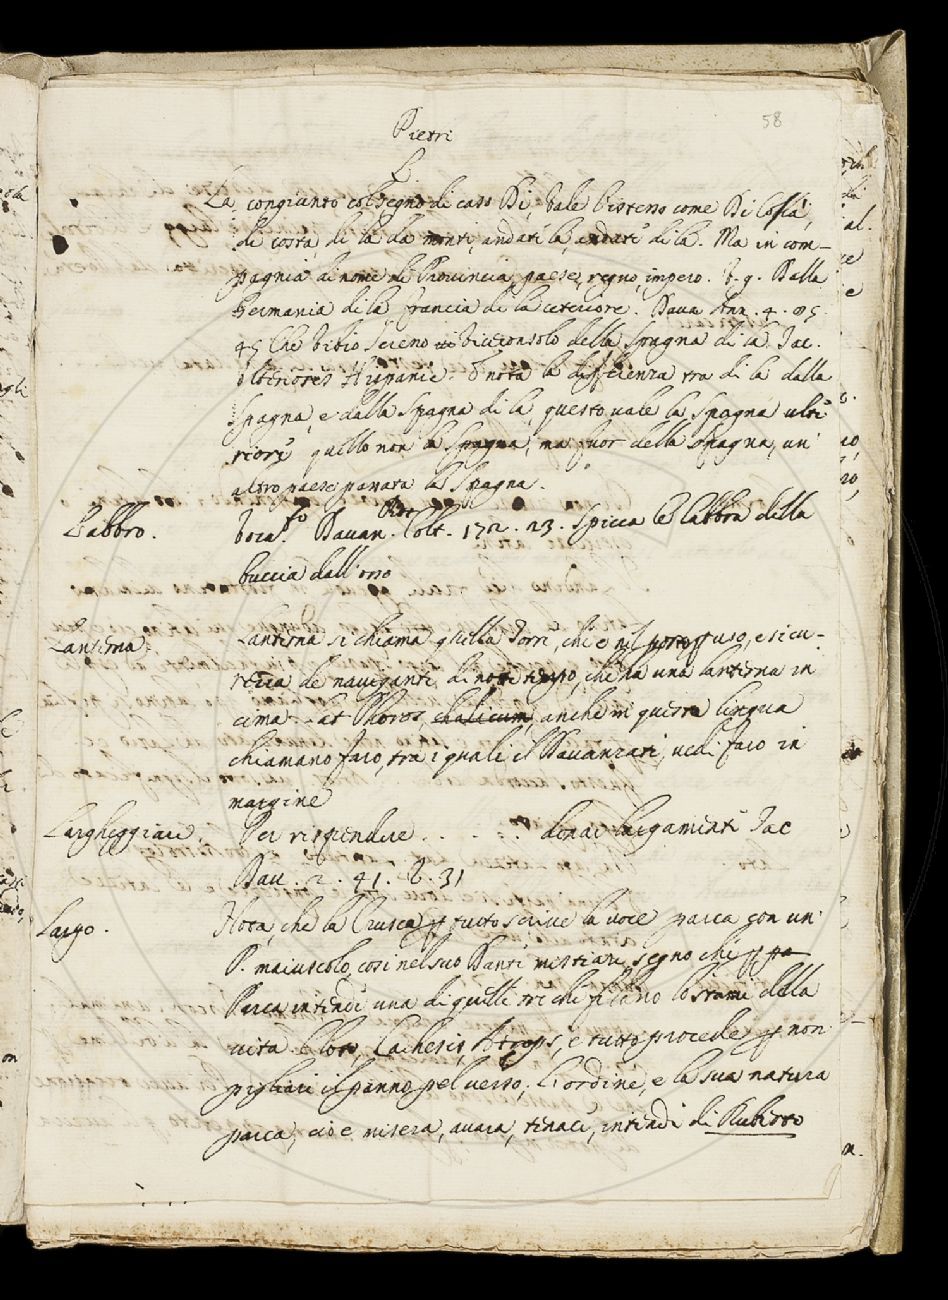 58
Pietri
L.
La congiunto col segno di caso Di, Vale l'istesso come Di Costà,
di costà, di là da monti, andati là, andati di là. Ma in com-
pagnia di nome di Provincia, paese, regno, impero. V. g. Dalla
Germania di là francia di là citeriore. Dava Ann. 4. 85.
45 Che Vibio Sereno Viceconsolo della Spagna di là. Tac.
Ulterioris Hispanie. E nota la differenza tra di là dalla
Spagna, e dalla Spagna di là, questo vale la Spagna ulte
riore quello non la Spagna, ma fuor della Spagna, un'
altro paese passata la Spagna.
Labbro. Davan. Colt. 172. 23. Spicca le labbra della
buccia dall'osso
Lanterna. Lanterna si chiama quella Torre, che è nel porto uso, e sicu-
rezza de naviganti di notte tempo, che ha una lanterna in
cima. at anche in questa lingua
chiamano faro, tra i quali il Davanzati, vedi faro in
margine
Largheggiare. Per rispendere . . . . donar largamente Tac
Dav. 2. 41. 31
Largo. Nota, che la Crusca p tutto scrive la voce parca con un'
P. maiuscolo, così nel suo Danti segno che p pa
Parca intende una di quelle tre che filano lo stame della
vita Cloto, Lachesis, Atropos, e tutto procede p non
pigliare il panno pel verso; L'ordine, e la sua natura
parca, cioè misera, avara, tenace, intende di Ruberto